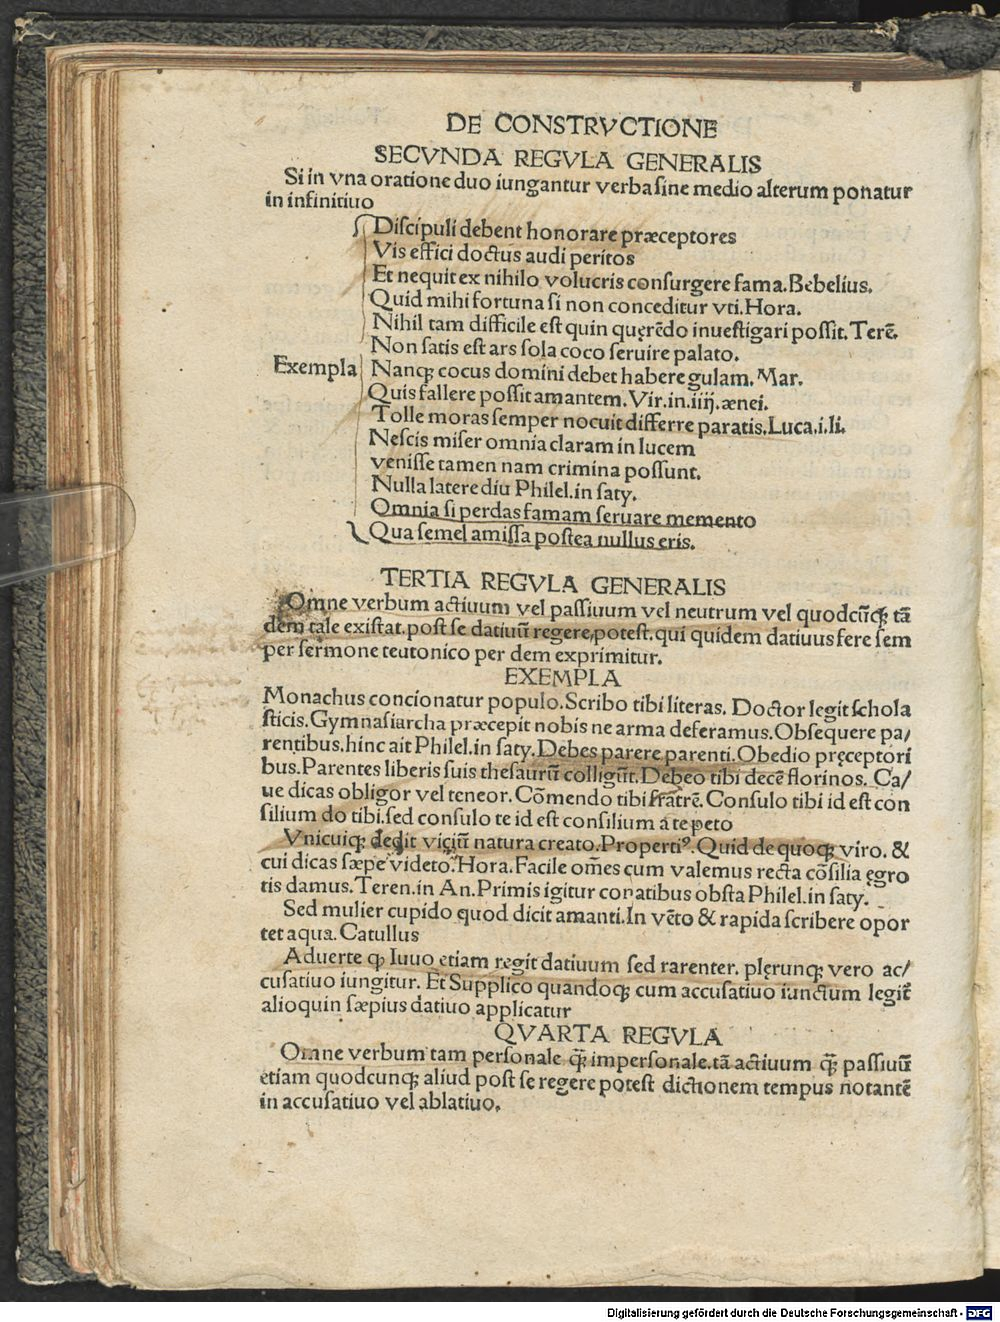 DE CONSTRVCTIONE
SECVNDA REGVLA GENERALIS
Si in vna oratione duo iungantur verba sine medio alterum ponatur
in infinitiuo
Discipuli debent honorare præceptores
Vis effici doctus audi peritos
Et nequit ex nihilo volucris consurgere fama. Bebelius.
Quid mihi fortuna si non conceditur vti. Hora.
Nihil tam difficile est quin quęrēdo inuestigari possit. Terē.
Non satis est ars sola coco seruire palato.
Exempla Nanqꝫ cocus domini debet habere gulam. Mar.
Quis fallere possit amantem. Vir. in. iiij. ænei.
Tolle moras semper nocuit differre paratis. Luca. i. li.
Nescis miser omnia claram in lucem
venisse tamen nam crimina possunt.
Nulla latere diu Philel. in saty.
Omnia si perdas famam seruare memento
Qua semel amissa postea nullus eris.
TERTIA REGVLA GENERALIS
Omne verbum actiuum vel passiuum vel neutrum vel quodcūqꝫ tā
dem tale existat. post se datiuū regere, potest. qui quidem datiuus fere sem
per sermone teutonico per dem exprimitur.
EXEMPLA
Monachus concionatur populo. Scribo tibi literas. Doctor legit schola
sticis. Gymnasiarcha præcepit nobis ne arma deferamus. Obsequere pa/
rentibus. hinc ait Philel. in saty. Debes parere parenti. Obedio pręceptori
bus. Parentes liberis suis thesaurū colligūt. Debeo tibi decē florinos. Ca/
ue dicas obligor vel teneor. Cōmendo tibi fratrē. Consulo tibi id est con
silium do tibi. sed consulo te id est consilium a te peto
Vnicuiqꝫ dedit viciū natura creato. Propertiꝰ. Quid de quoqꝫ viro. &
cui dicas sæpe videto. Hora. Facile om̄es cum valemus recta cōsilia ęgro
tis damus. Teren. in An. Primis igitur conatibus obsta Philel. in saty.
Sed mulier cupido quod dicit amanti. In vēto & rapida scribere opor
tet aqua. Catullus
Aduerte qꝫ Iuuo etiam regit datiuum sed rarenter. plęrunqꝫ vero ac/
cusatiuo iungitur. Et Supplico quandoqꝫ cum accusatiuo iunctum legit᷑
alioquin sæpius datiuo applicatur
QVARTA REGVLA
Omne verbum tam personale qꝫ̄ impersonale. tā actiuum qꝫ̄ passiuū
etiam quodcunqꝫ aliud post se regere potest dictionem tempus notantē
in accusatiuo vel ablatiuo.
Digitalisierung gefördert durch die Deutsche Forschungsgemeinschaft - DFG